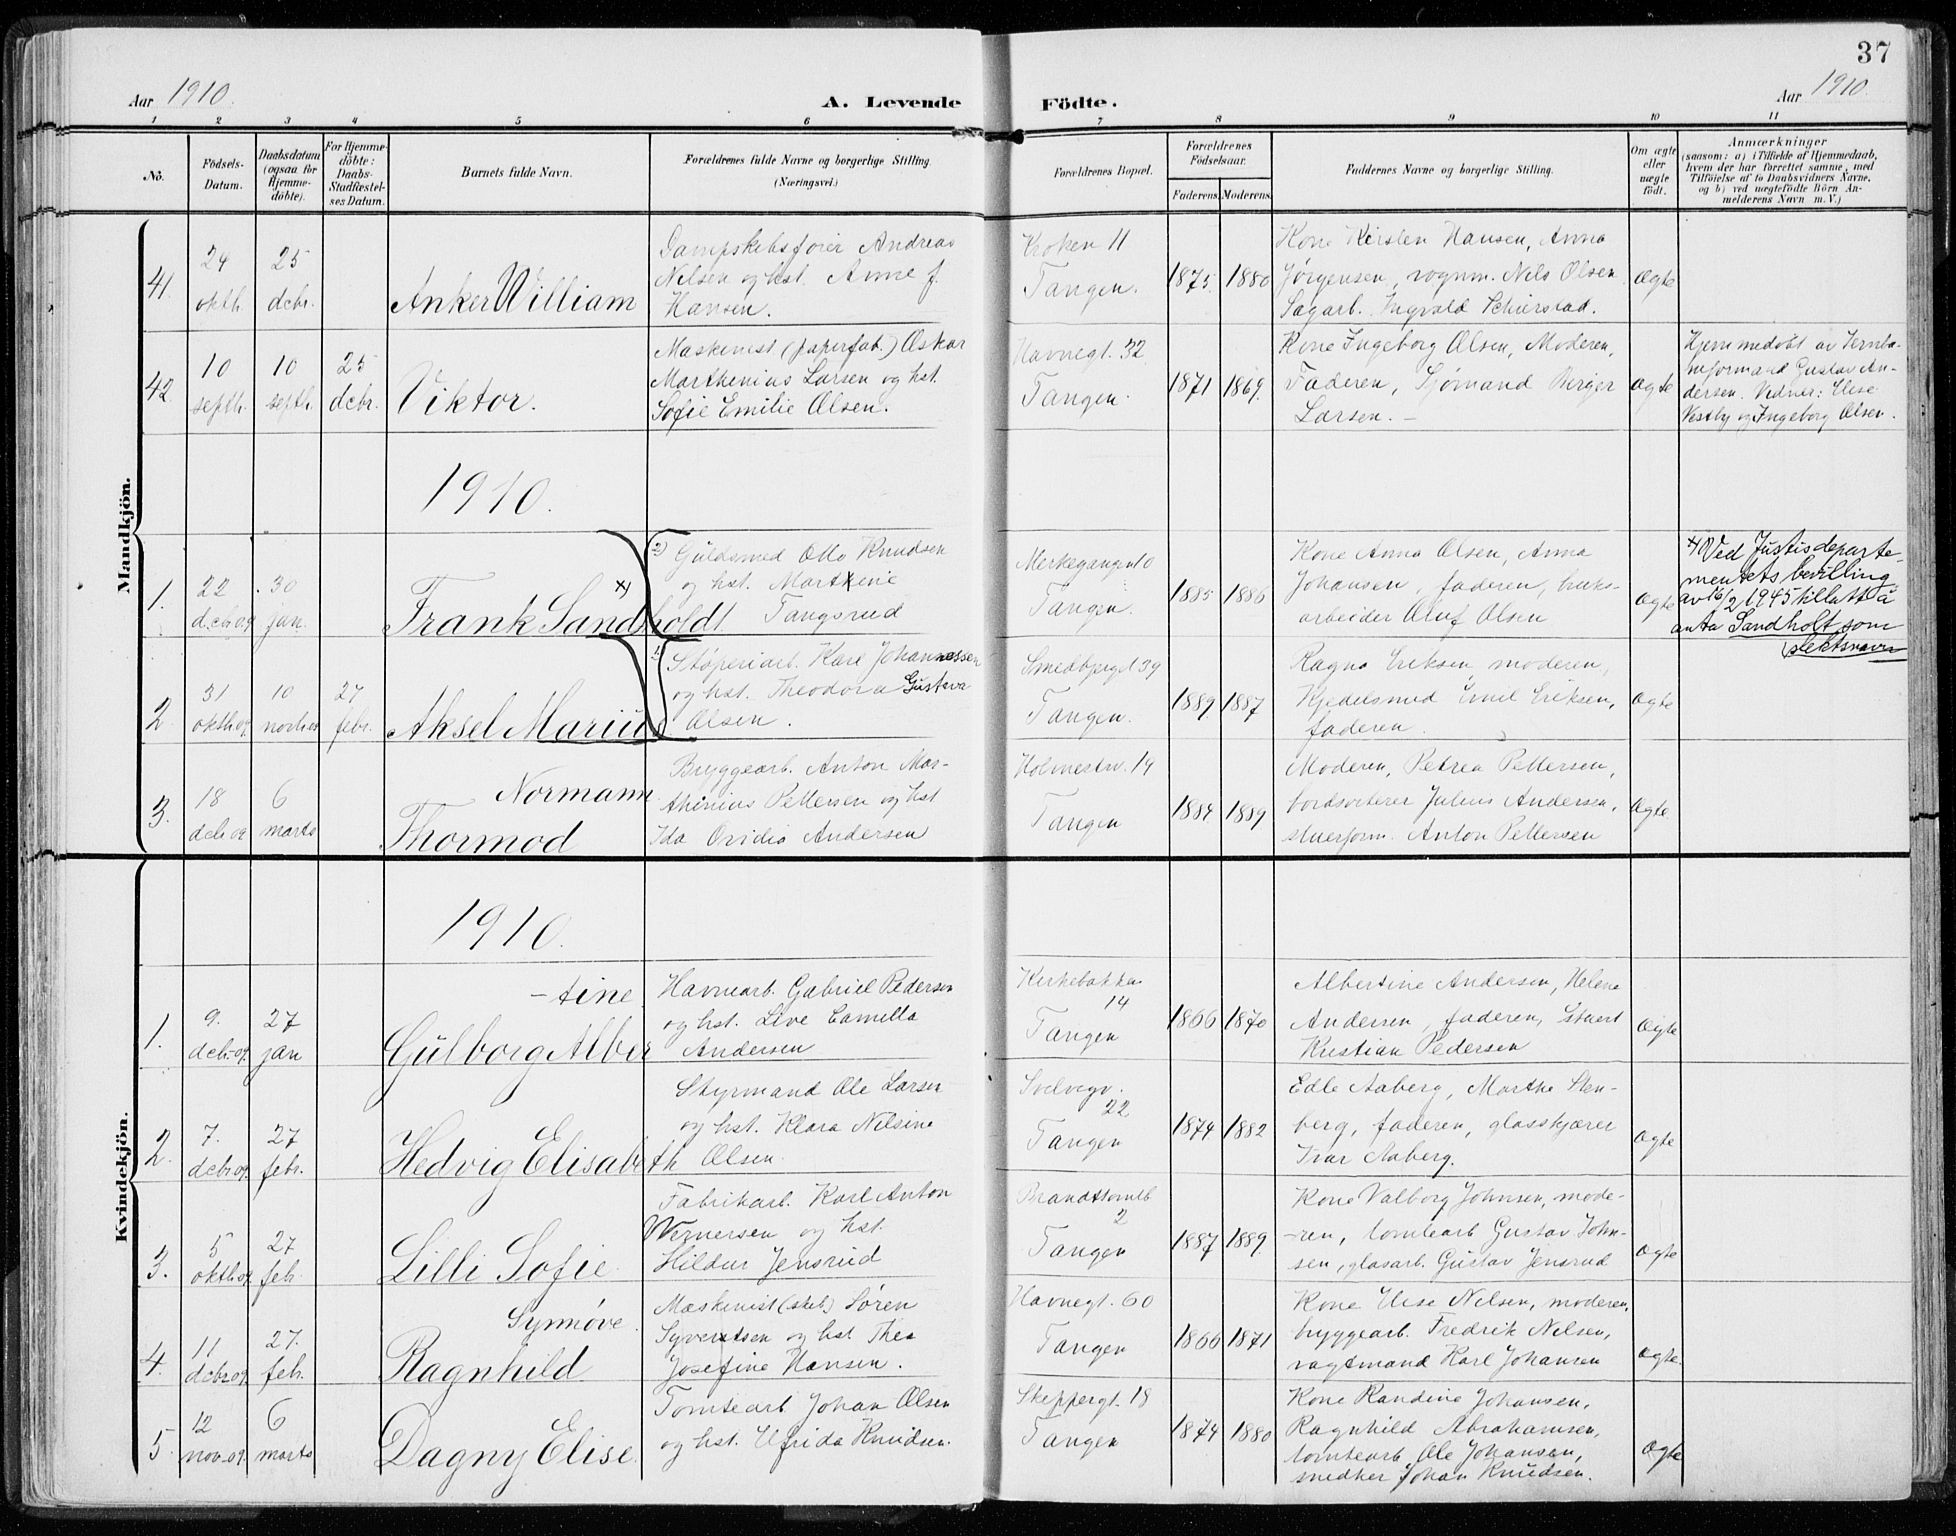 37
Aar 1910.
A. Levende
Födte.
Aar 1910.
1 2 3 4 5 6 7 8 9 10 11
No.
Födsels-
Datum.
Daabsdatum
(ogsaa for
Hjemme-
döbte).
For Hjemme-
döbte:
Daabs-
Stadfæstel-
ses Datum.
Barnets fulde Navn.
Forældrenes fulde Navne og borgerlige Stilling.
(Næringsvei.)
Forældrenes Bopæl.
Forældrenes
Födselsaar.
Faderens.
Moderens.
Faddernes Navne og borgerlige Stilling.
Om ægte
eller
uægte
födt.
Anmærkninger
(saasom: a) i Tilfælde af Hjemmedaab,
hvem der har forrettet samme, med
Tilföielse af to Daabsvidners Navne,
og b) ved uægtefödte Börn An-
melderens Navn m. V.)
Mandkjön.
41.
24
oktb.
25
debr.
Anker William
Dampskibsfører Andreas
Nilsen og hst. Anne f.
Hansen.
Kroken 11
Tangen.
1875.
1880
Kone Kirsten Hansen, Anna
Jørgensen, vognm. Nils Olsen
Sagarb. Ingvald
Ægte
42.
10
septb.
10
septb.
25
debr.
Viktor.
Maskinist (papirfab.) Oskar
Marthinius Larsen og hst.
Sofie Emilie Olsen.
Havnegt. 32
Tangen.
1871
1869.
Kone Ingeborg Olsen, Moderen,
Faderen, Sjømand Birger
Larsen. –
ægte
Hjemmedøbt av Jernba-
neformand Gustav An-
dersen. Vidner: Elise
Vestby og Ingeborg Olsen.
1910.
1.
22
debr.09
30
jan.
Frank Sandholdt x)
2) Guldsmed Otto Knudsen
og hst. Marthine
Tangsrud
Merkegangen 10
Tangen.
1885
1886
Kone Anna Olsen, Anna
Johansen, faderen, bruks-
arbeider Oluf Olsen
ægte
x) Ved Justisdeparte-
mentets bevilling
av 16/2 1945 tillatt å
anta Sandholt som
slektsnavn
2.
31
oktb.09.
10
novb.09
27
febr.
Aksel Marius
1) Støperiarb. Karl Johannessen
og hst. Theodora Gustava
Olsen.
Smedbjergt 39
Tangen.
1889
1887
Ragna Eriksen, moderen,
Kjedelsmed Emil Eriksen,
faderen.
ægte
3.
18
debr.09
6
marts
Normann
Thormod
Bryggearb. Anton Mar-
thinius Pettersen og hst
Ida Ovidia Andersen
Holmestrv. 19
Tangen
1884
1889
Moderen, Petrea Pettersen,
bordsorterer Julius Andersen,
stuerform. Anton Pettersen
ægte.
Kvindekjön.
1910.
1.
9.
debr.09.
27
jan
-tine
Gulborg Alber
Havnearb. Gabriel Pedersen
og hst. Live Camilla
Andersen
Kirkebakken
14
Tangen
1866
1870
Albertine Andersen, Helene
Andersen, faderen, Stuert
Kristian Pedersen
ægte
2.
7.
debr.09.
27
febr.
Hedvig Elisabeth
Styrmand Ole Larsen
og hst. Klara Nilsine
Olsen.
Svelvegv.
22
Tangen
1874
1882
Edle Aaberg, Marthe Sten-
berg, faderen, glasskjærer
Ivar Aaberg.
ægte
3.
5
oktb.09
27
feb.
Lilli Sofie.
Fabrikarb. Karl Anton
Wernersen og hst.
Hildur Jensrud
2
Tangen
1887
1889
Kone Valborg Johnsen, mode-
ren, tomtearb Gustav John-
sen, glasarb. Gustav Jensrud
ægte
4.
11
debr.09.
27.
feb.
Synnøve.
Ragnhild
Maskinist (skib) Søren
Syvertsen og hst Thea
Josefine Hansen.
Havnegt. 60
Tangen
1866
1871
Kone Elise Nilsen, moderen,
bryggearb. Fredrik Nilsen,
vagtmand Karl Johansen
ægte.
5.
12
nov.09.
6
marts
Dagny Elise.
Tomtearb Johan Olsen
og hst. Ufrida Knudsen.
Skeppergt. 18
Tangen
1874
1880
Kone Randine Johansen,
Ragnhild Abrahamsen,
tomtearb. Ole Johansen,
snedker Johan Knudsen.
ægte